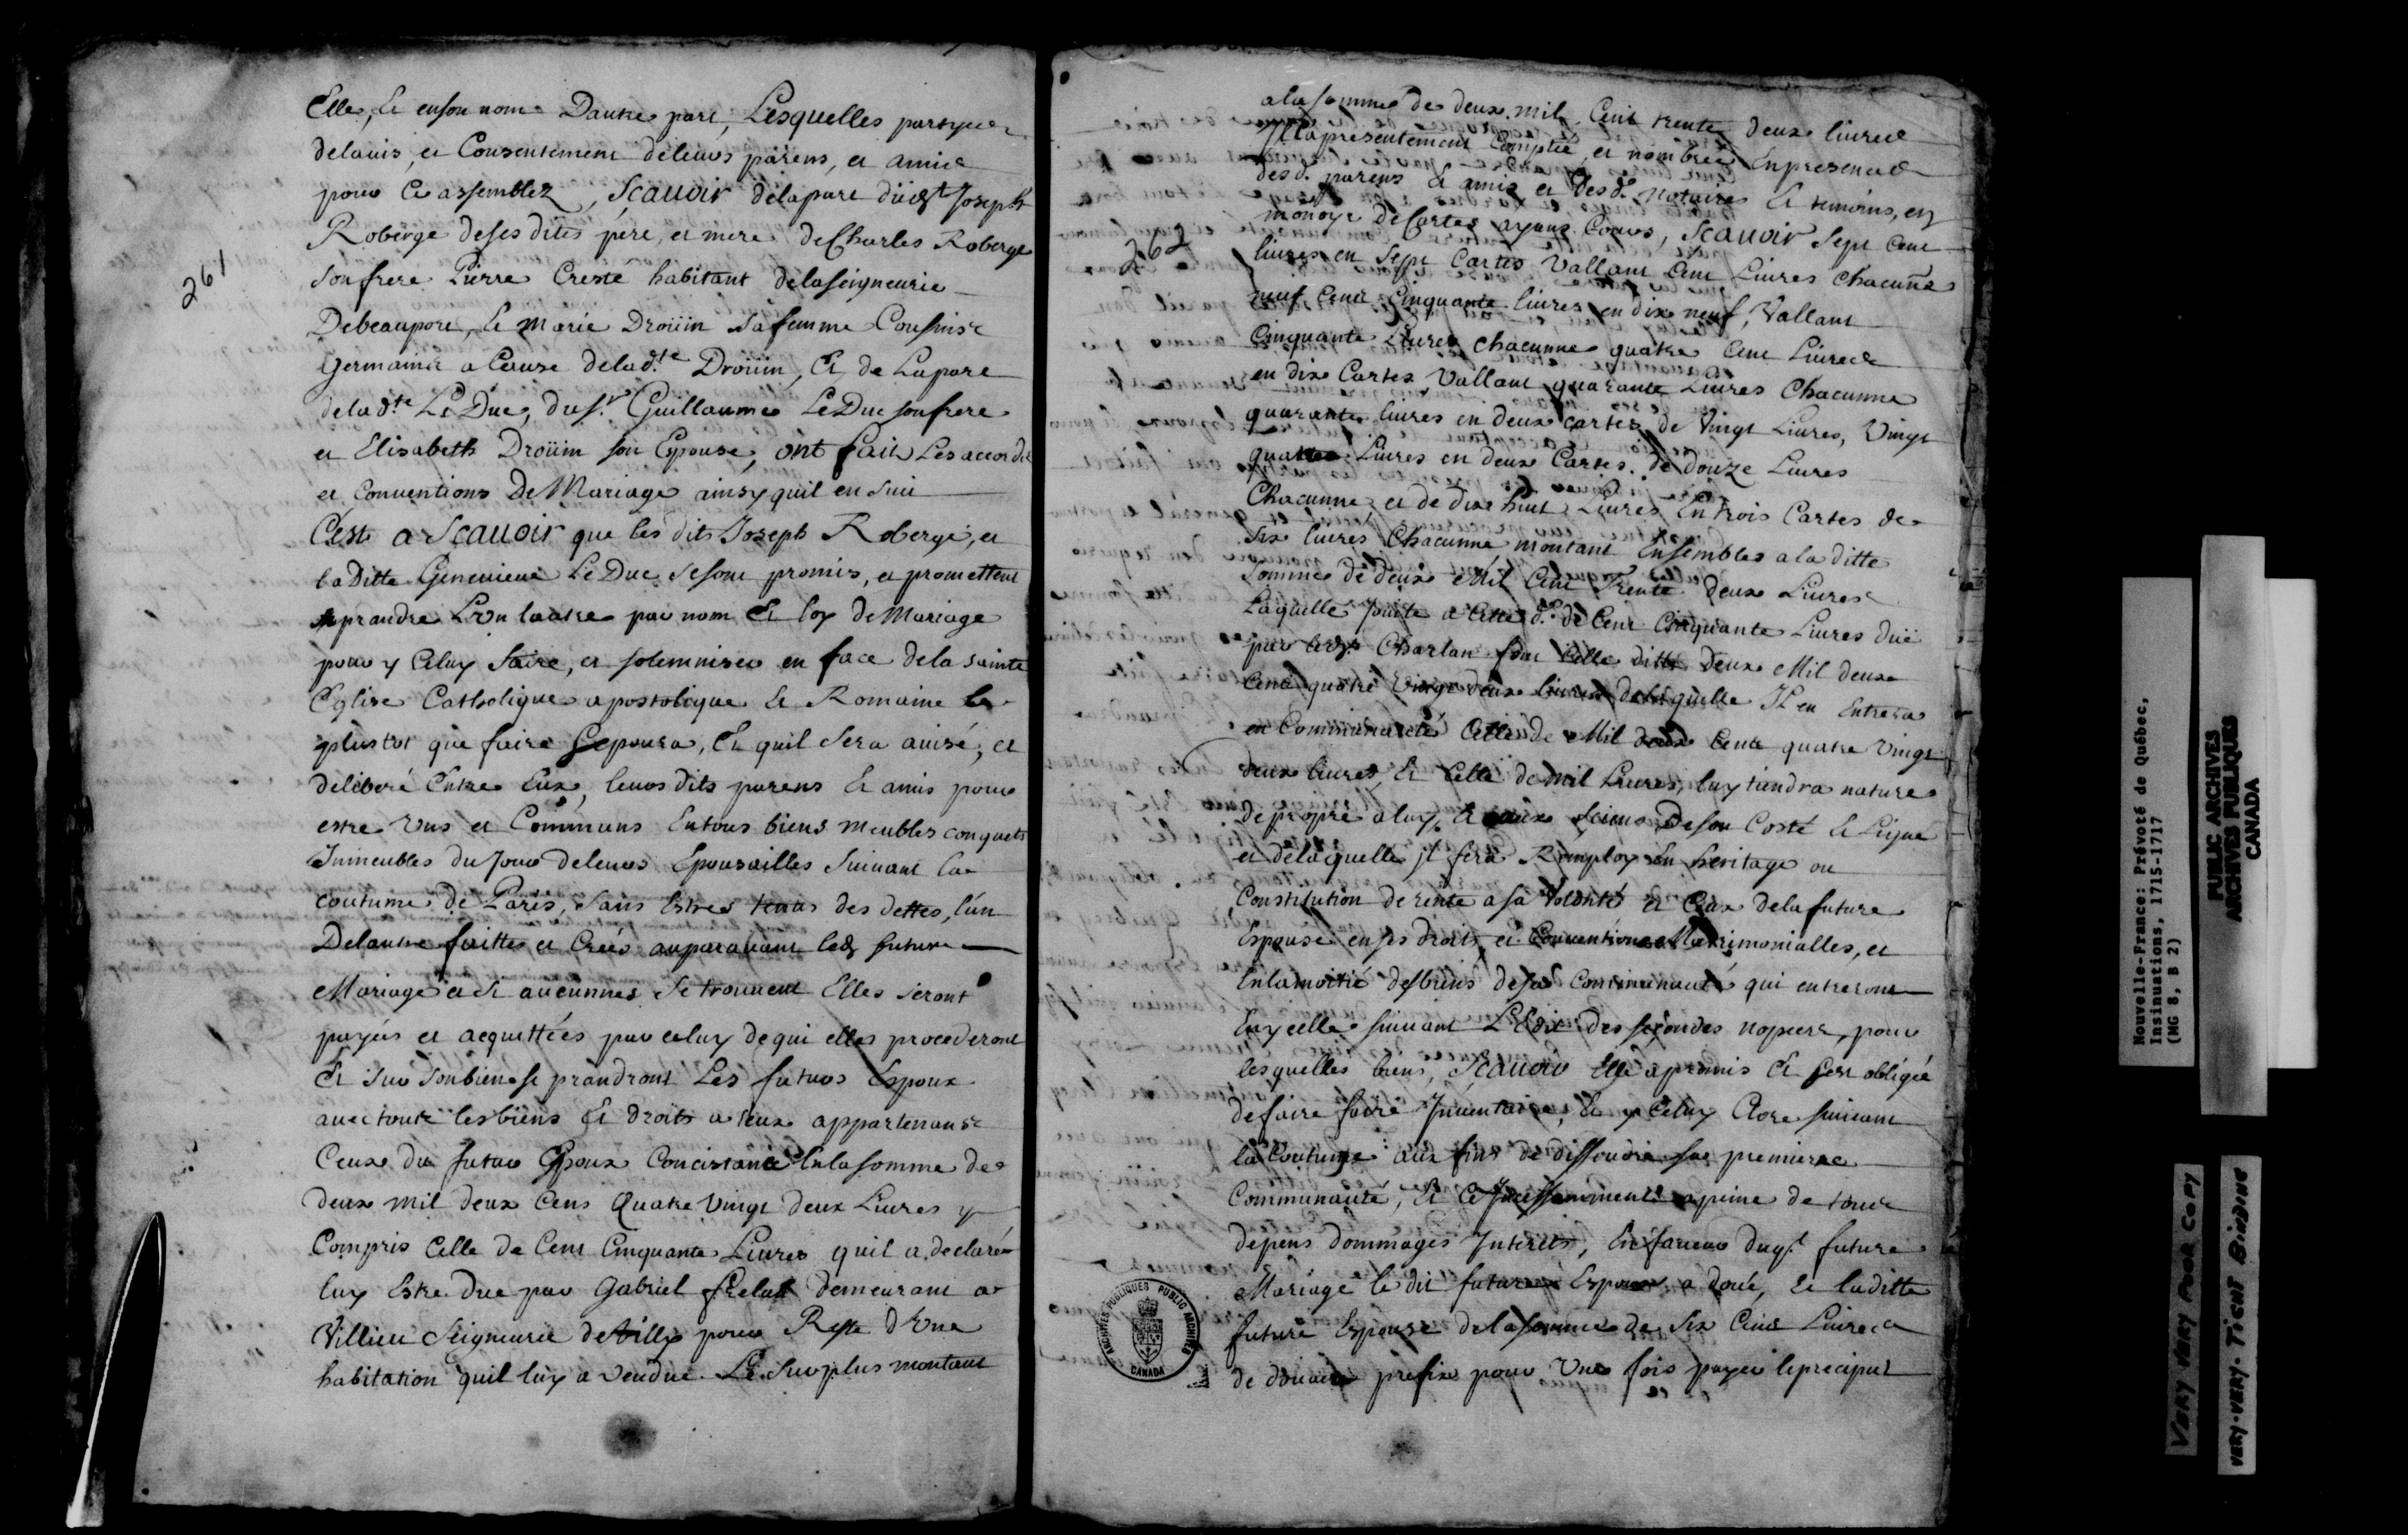 261
Elle, Et en son nom Dautre part, Lesquelles partyes
de lavis, et Consentement de leurs parens, et amis
pour Ce assemblez, Scavoir de la part dud.t Joseph
Roberge de ses dites père, et mere de Charles Roberge
son frere Pierre Cresté habitant de la Seigneurie
De beauport, Et Marie Droüin sa femme Cousins
germains a Cause de lad.te Droüin, Et de La part
de lad.te Le Duc, du S.r Guillaume Le Duc son frere
et Elisabeth Droüin son Epouse, ont fait Les accords
et Conventions De Mariage ainsy quil en suit
C'est a Scavoir que les dits Joseph Roberge, et
la Ditte Genevieve Le Duc se sont promis, et promettent
prandre L'vn lautre par nom Et loy de Mariage
pour y Celuy faire, et solemniser en face de la sainte
Eglise Catholique apostolique Et Romaine le
plustot que faire se poura, Et quil sera avisé, et
deliberé Entre Eux, leurs dits parens Et amis pour
estre vns et Communs En tous biens meubles conquets
Immeubles du Jour de leurs Epousailles suivant la
coutume de Paris, sans Estres tenus des dettes, l'un
De lautre faittes et Creés auparavant led. futur
Mariage et si aucunnes se trouvent Elles seront
payées et acquittées par celuy de qui elles procederont
Et sur son bien se prandront Les futurs Espoux
avec touts les biens Et droits a Eux appartenans
Ceux du futur Epoux Concistance En la somme de
deux mil deux Cens Quatre vingt deux Livres y
Compris Celle de Cent Cinquante Livres quil a declaré
luy Estre due par Gabriel demeurant a
Villieu Seigneurie de Tilly pour Reste d'Une
habitation quil luy a vendue. Le surplus montant
262
a la somme de deux mil Cent trente deux livres
Il a presentement Compteé, et nombreé En presence
des d. parens Et amis et des d. Notaires Et temoins, en
monoye de Cartes ayans Cours, Scavoir Sept Cent
livres en Sept Cartes Vallant Cent Livres Chacunne
neuf Cent Cinquante livres en dix neuf, Vallant
Cinquante Livres chacunne quatre Cent Livres
en dix Cartes Vallant quarante Livres Chacunne
quarante livres en deux cartes de Vingt Livres, Vingt
quattre Livres en deux Cartes de douze Livres
Chacunne et de dix huit Livres En trois Cartes de
Six livres Chacunne montant Ensembles a la ditte
Somme de deux Mil Cent Trente deux Livres
Laquelle Jointe a Celle d. de Cent Cinquante Livres düe
par led. Charlan font Celle ditte deux Mil deux
Cent quatre Vingt deux livres de laquelle Il en Entrera
en Communauté Celle de Mil deux Cents quatre Vingt
deux livres, Et Celle de Mil Livres, luy tiendra nature
de propre a luy, Et aux Siens De son Costé Et Ligne
et de laquelle Il fera Remploy en heritage ou
Constitution de rente a sa volonté et Ceux de la future
Espouse en ses droits, et Conventions Matrimonialles, et
En la moitié des biens de sa Communauté qui entreront
En ycelle suivant L'Edit des secondes nopces, pour
lesquelles biens, Scavoir Elle a promis Et s'est obligée
de faire faire Inventaire, Et y Celuy Clore suivant
la Coutume aux fins de dissoudre sa premiere
Communauté, Et Ce Incessamment a peine de tous
depens dommages Interets, En faveur duq.l future
Mariage le dit future Espoux a doué, Et la ditte
future Espouse de la somme de Six Cens Livres
de douaire prefix pour Une fois payer le preciput
Nouvelle-France: Prévoté de Québec,
Insinuations, 1715-1717
(MG 8, B 2)
PUBLIC ARCHIVES
ARCHIVES PUBLIQUES
CANADA
VERY VERY POOR COPY
VERY-VERY-TIGHT BINDING
ARCHIVES PUBLIQUES PUBLIC ARCHIVES
CANADA